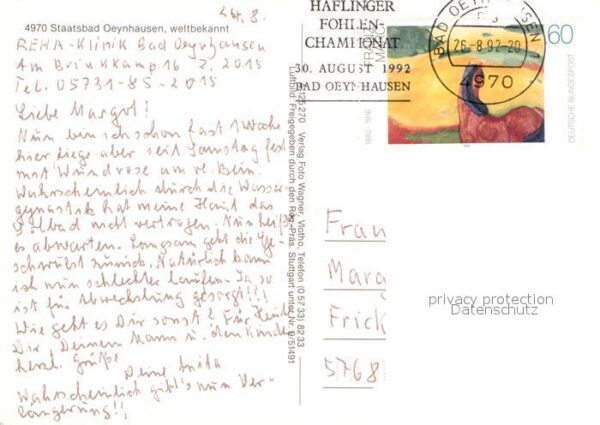 24. 8.
4970 Staatsbad Oeynhausen, weltbekannt
REHA-Klinik Bad Oeynhausen
Am Brinkkamp 16 Z. 2015
Tel. 05731-85-2015
Liebe Margret!
Nun bin ich schon fast 1 Woche
hier, liege aber seit Samstag fest
mit Wundrose am re. Bein.
Wahrscheinlich durch die Wasser-
gymnastik hat meine Haut das
bad nicht vertragen. Nun heißt
es abwarten. Langsam geht die Ge-
schwulst zurück. Natürlich kann
ich nun schlechter laufen. Ja, so
ist für Abwechslung gesorgt!!!
Wie geht es Dir sonst? Für Heute
Dir, Deinem Mann u. den Kindern
herzl. Grüße
Deine Anita
Wahrscheinlich gibt's nun Ver-
längerung!!
N25.270 Verlag Foto Wagner, Vlotho, Telefon (0 57 33) 82 33
Luftbild: Freigegeben durch den Reg.-Präs. Stuttgart unter Nr. 9/51491
HAFLINGER
FOHLEN-
CHAMPIONAT
30. AUGUST 1992
BAD OEYNHAUSEN
BAD OEYNHAUSEN
26.-8.92-20
4970
FRANZ
MARC
1880 - 1916
60
DEUTSCHE BUNDESPOST
Frau
Marg
Frick
5768
privacy protection
Datenschutz